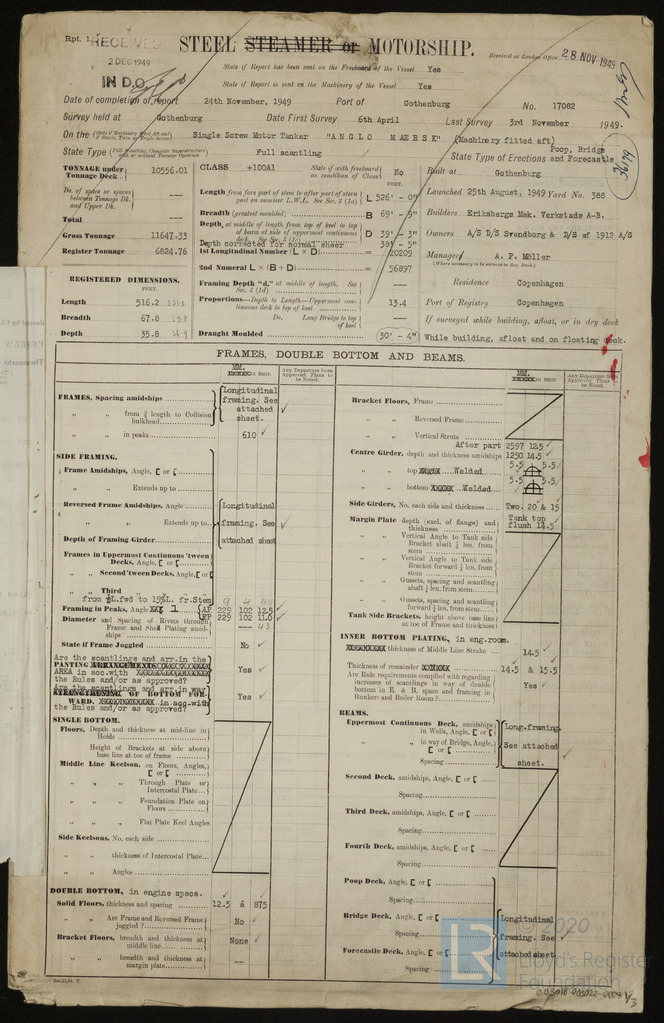 Rpt. 1.
RECEIVED
2 DEC 1949
IN D.O.
STEEL STEAMER or MOTORSHIP.
Received at London Office 28 NOV 1949
State if Report has been sent on the Freeboard of the Vessel Yes
State if Report is sent on the Machinery of the Vessel Yes
Date of completion of report 24th November, 1949 Port of Gothenburg No. 17082
Survey held at Gothenburg Date First Survey 6th April Last Survey 3rd November 1949.
On the Single Screw Motor Tanker "ANGLO MAERSK" (Machinery fitted aft)
State Type (Full Scantling, Complete Superstructure with or without Tonnage Openings) Full scantling State Type of Erections Poop, Bridge and Forecastle
TONNAGE under Tonnage Deck... 10556.01
Do. of space or spaces between Tonnage Dk. and Upper Dk.
Total
Gross Tonnage 11647.33
Register Tonnage 6824.76
REGISTERED DIMENSIONS.
FEET.
Length 516.2
Breadth 67.8
Depth 35.8
CLASS +100A1 State if with freeboard as condition of Class No
Length from fore part of stem to after part of stern post on summer L.W.L. See Sec. 3 (1a) L 526' - 0"
Breadth (greatest moulded) B 69' - 9"
Depth, at middle of length from top of keel to top of beam at side of uppermost continuous deck. See Sec. 3 (1c) D 39' - 3"
Depth corrected for normal sheer 38' - 5"
1st Longitudinal Number (L × D) = 20209
2nd Numeral L × (B + D) = 56897
Framing Depth "d," at middle of length. See Sec. 3 (1d)
Proportions—Depth to Length—Uppermost continuous deck to top of keel 13.4
Do. Long Bridge to top of keel
Draught Moulded 30' - 4"
Built at Gothenburg
Launched 25th August, 1949 Yard No. 388
Builders Eriksbergs Mek. Verkstads A-B.
Owners A/S D/S Svendborg & D/S af 1912 A/S
Managers A. P. Möller
(Where necessary to be entered in Reg. Book.)
Residence Copenhagen
Port of Registry Copenhagen
If surveyed while building, afloat, or in dry dock
While building, afloat and on floating dock.
FRAMES, DOUBLE BOTTOM AND BEAMS.
MM. IN SHIP.
Any Departure from Approved Plans to be Noted.
FRAMES, Spacing amidships
" " from 3/5 length to Collision bulkhead
Longitudinal framing. See attached sheet.
" " in peaks 610
SIDE FRAMING.
Frame Amidships, Angle, [ or [
" " Extends up to
Reversed Frame Amidships, Angle
" " Extends up to
Depth of Framing Girder
Longitudinal framing. See attached sheet
Frames in Uppermost Continuous 'tween Decks, Angle, [ or [
" " Second 'tween Decks, Angle, [ or [
" " Third
from ½L.fwd to 15%L. fr.Stem
Framing in Peaks, Angle AP 229 102 12.5
FP 229 102 11.0
Diameter and Spacing of Rivets through Frame and Shell Plating amidships ---
State if Frame Joggled No
Are the scantlings and arr. in the PANTING ARRANGEMENTS AREA in acc.with the Rules and/or as approved? Yes
Are the scantlings and arr. in way STRENGTHENING OF BOTTOM FORWARD. in acc.with the Rules and/or as approved? Yes
SINGLE BOTTOM.
Floors, Depth and thickness at mid-line in Holds
Height of Brackets at side above base line at toe of frame
Middle Line Keelson, on Floors, Angles, [ or [
" " Through Plate or Intercostal Plate
" " Foundation Plate on Floors
" " Flat Plate Keel Angles
Side Keelsons, No. each side
" " thickness of Intercostal Plate
" " Angles
DOUBLE BOTTOM, in engine space.
Solid Floors, thickness and spacing 12.5 á 875
" " Are Frame and Reversed Frame joggled? No
Bracket Floors, breadth and thickness at middle line None
" " breadth and thickness at margin plate --
Bracket Floors, Frame
" " Reversed Frame
" " Vertical Struts
After part 2597 12.5
Centre Girder, depth and thickness amidships 1250 14.5
" " top Welded 5.5 5.5
" " bottom Welded 5.5 5.5
Side Girders, No. each side and thickness Two. 20 & 15
Margin Plate depth (excl. of flange) and thickness Tank top flush 14.5
" " Vertical Angle to Tank side Bracket abaft ¼ len. from stem
" " Vertical Angle to Tank side Bracket forward ¼ len. from stem
" " Gussets, spacing and scantling abaft ¼ len. from stem
" " Gussets, spacing and scantling forward ¼ len. from stem
Tank Side Brackets, height above base line at toe of Frame and thickness
INNER BOTTOM PLATING, in eng.room.
thickness of Middle Line Strake 14.5
Thickness of remainder 14.5 & 15.5
Are Rule requirements complied with regarding increases of scantlings in way of double bottom in E. & B. space and framing in Bunkers and Boiler Room? Yes
BEAMS.
Uppermost Continuous Deck, amidships in Wells, Angle, [ or [
" " in way of Bridge, Angle, [ or [
Spacing
Long.framing. See attached sheet.
Second Deck, amidships, Angle, [ or [
Spacing
Third Deck, amidships, Angle, [ or [
Spacing
Fourth Deck, amidships, Angle, [ or [
Spacing
Poop Deck, Angle, [ or [
Spacing
Bridge Deck, Angle, [ or [
Spacing
Forecastle Deck, Angle, [ or [
Spacing
Longitudinal framing. See attached sheet
© 2020
Lloyd's Register
Foundation
LR